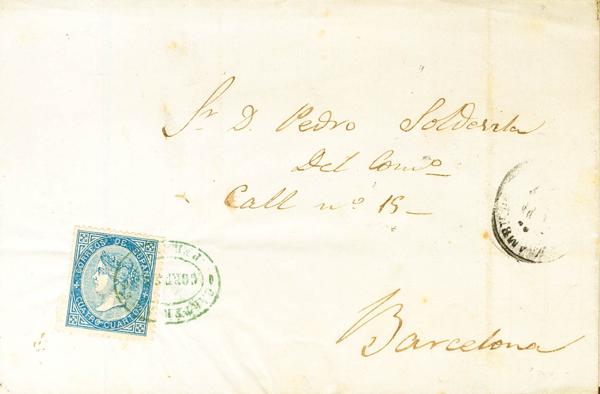 Sr. D. Pedro Solderila
Del Como
Call nº 15
Barcelona
CORREOS DE ESPAÑA
CUATRO CUARTOS